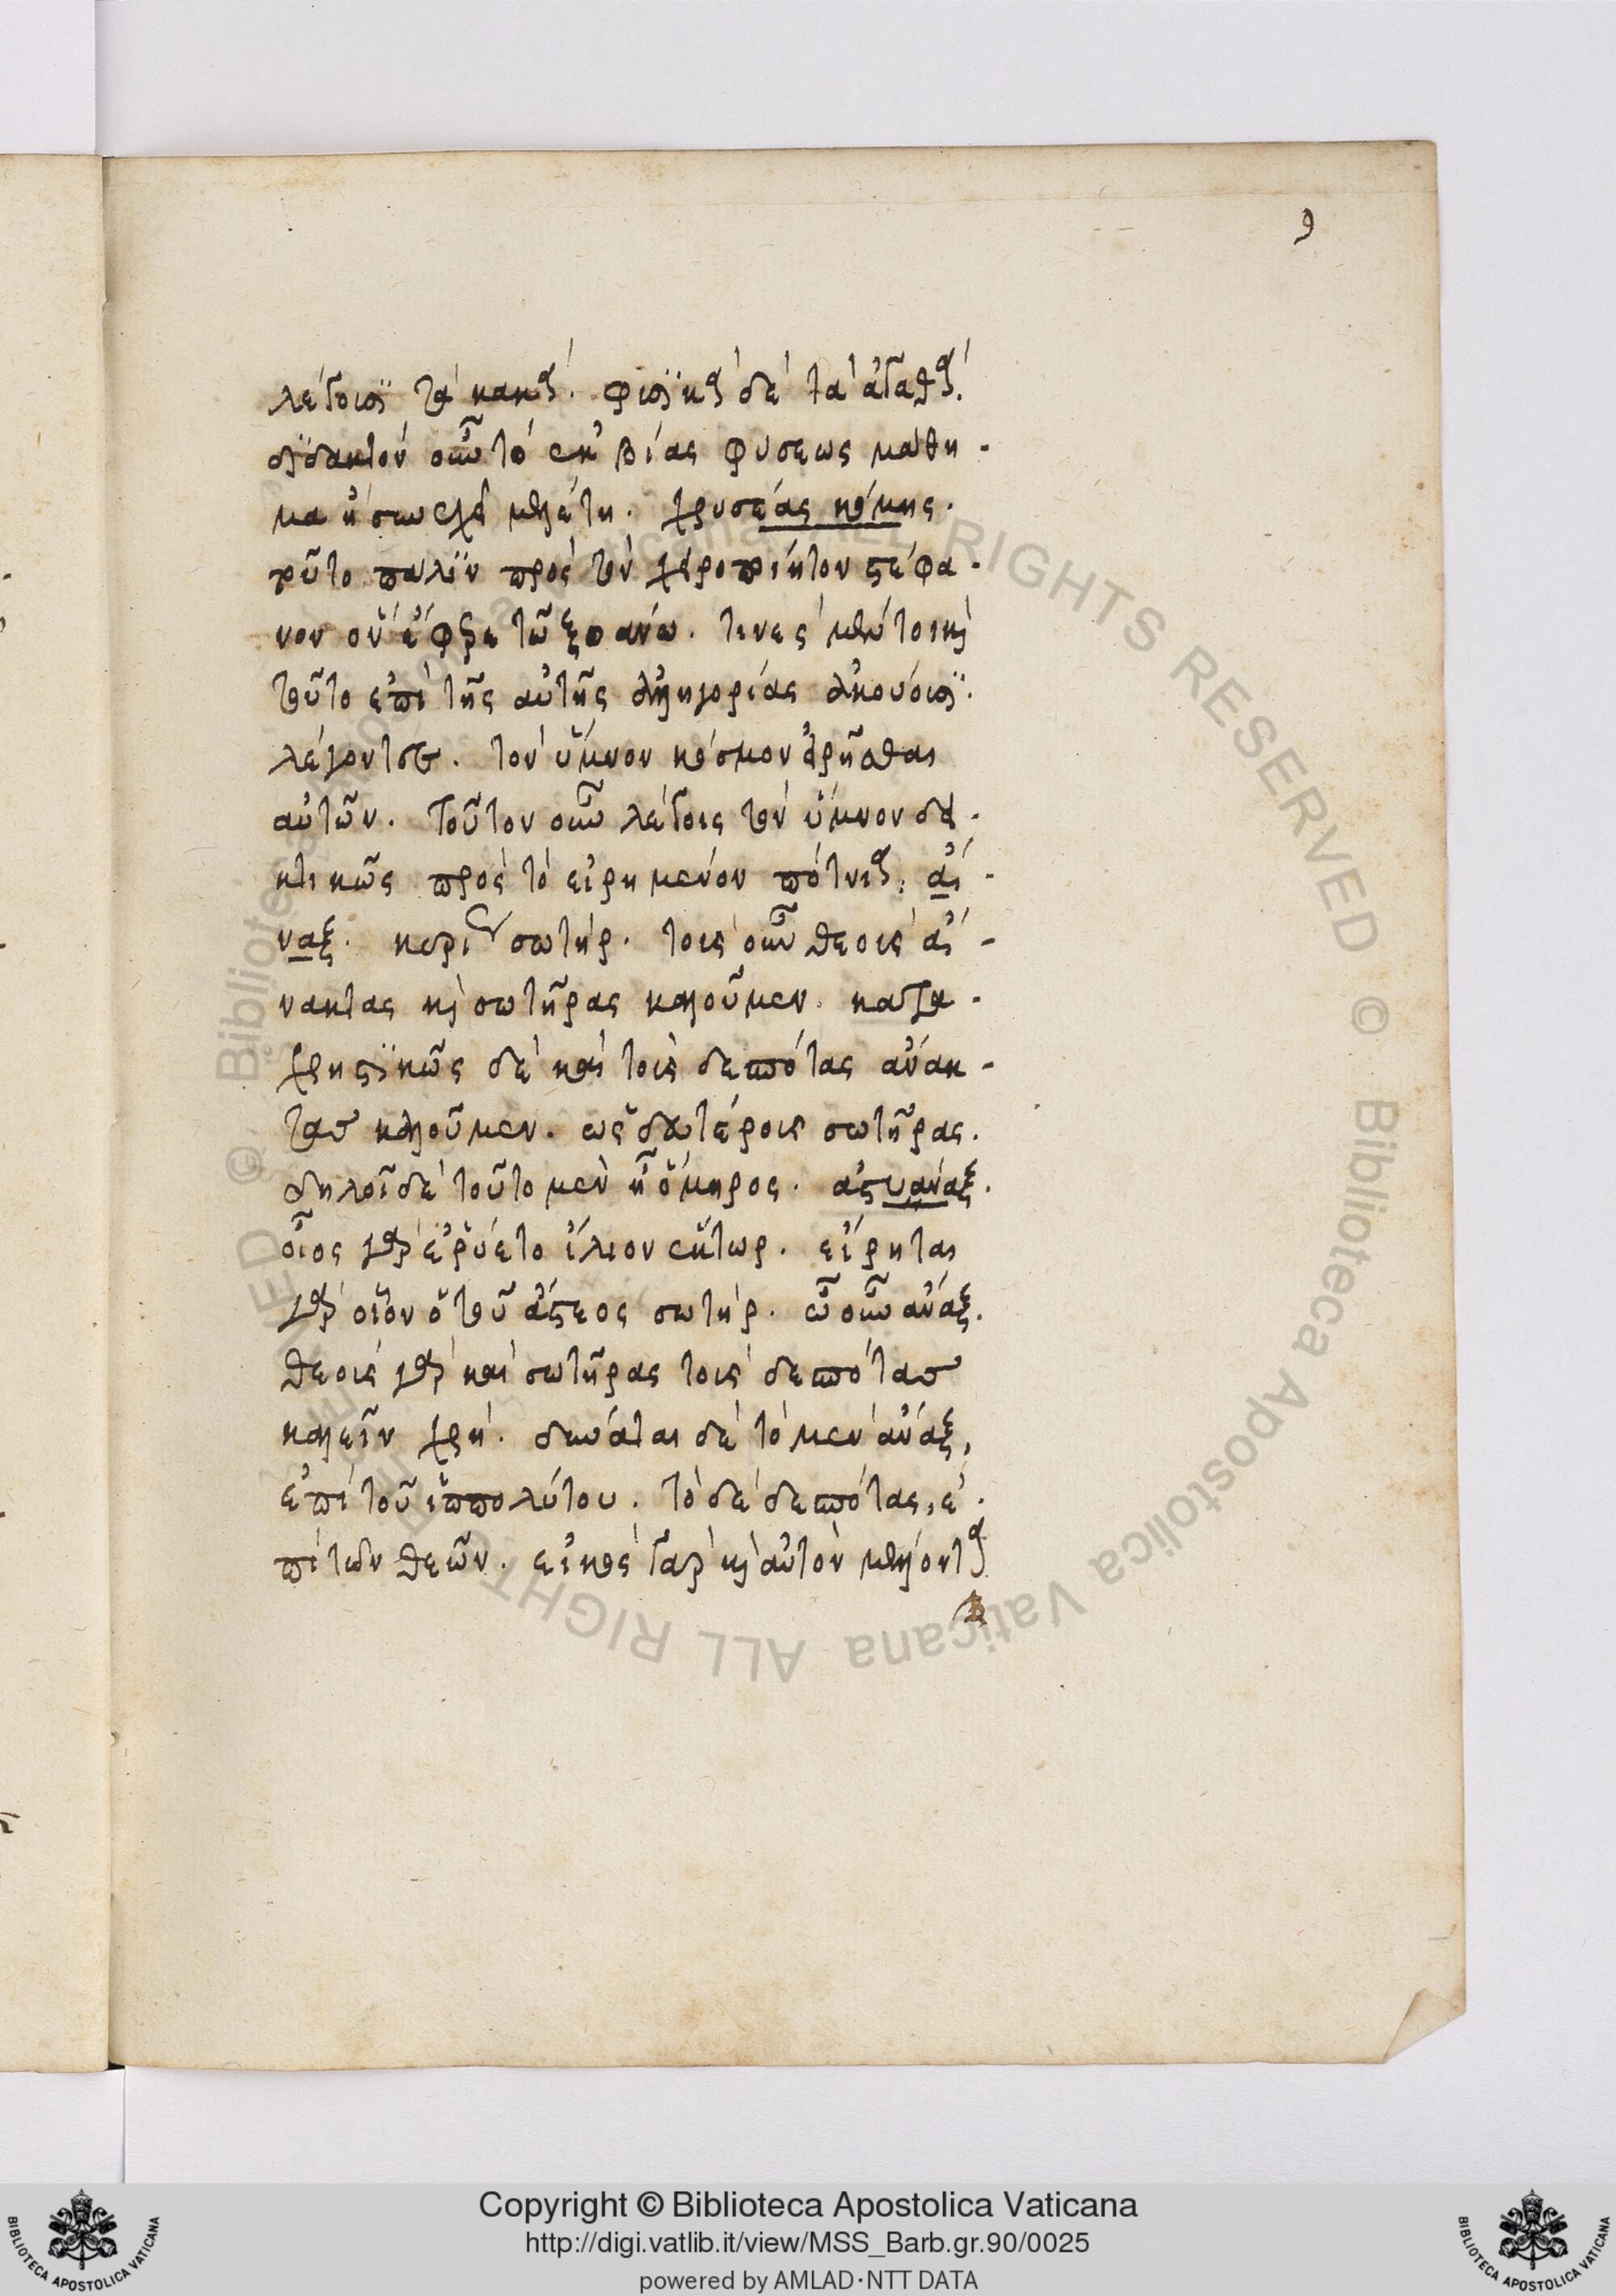 9
λέγουσι τὰ κακά. φυσικὰ δὲ τὰ ἀγαθά.
διδακτὸν οὖν τὸ ἐκ βίας φύσεως μάθη-
μα ἢ σὺν μελέτη. χρυσέας κόμης.
τοῦτο πάλιν πρὸς τὸν χειροποίητον στέφα-
νον ὃν ἔφερε τῶ ξοάνω. τινὲς μέντοι καὶ
τοῦτο ἐπὶ τῆς αὐτῆς ἀλληγορίας ἀκούουσι.
λέγοντες. τὸν ὕμνον κόσμον εἰρῆσθαι
αὐτῶν. τοῦτον οὖν λέγοις τὸν ὕμνον δει-
κτικῶς πρὸς τὸ εἰρημένον πότνια. ἄ-
ναξ. σωτήρ. τοὺς οὖν θεοὺς ἄ-
νακτας καὶ σωτῆρας καλοῦμεν. κατα-
χρηστικῶς δὲ καὶ τοὺς δεσπότας ἄνακ-
τας καλοῦμεν. ὡς δευτέρους σωτῆρας.
δηλοῖ δὲ τοῦτο μὲν ἢ ὅμηρος. ἀστυάναξ.
οἷος γὰρ ἐρύετο ἴλιον ἕκτωρ. εἴρηται
γὰρ οἷον ὁ τοῦ ἄστεος σωτήρ. ὦ οὖν ἄναξ.
θεοὺς γὰρ καὶ σωτῆρας τοὺς δεσπότας
καλεῖν χρή. δύναται δὲ τὸ μὲν ἄναξ,
ἐπὶ τοῦ ἱππολύτου. τὸ δὲ δεσπότας, ἐ-
πὶ τῶν θεῶν. εἰκὸς γὰρ καὶ αὐτὸν μέλλοντα
Copyright © Biblioteca Apostolica Vaticana
http://digi.vatlib.it/view/MSS_Barb.gr.90/0025
powered by AMLAD·NTT DATA
BIBLIOTECA APOSTOLICA VATICANA
BIBLIOTECA APOSTOLICA VATICANA
© Biblioteca Apostolica Vaticana ALL RIGHTS RESERVED © Biblioteca Apostolica Vaticana ALL RIGHTS RESERVED